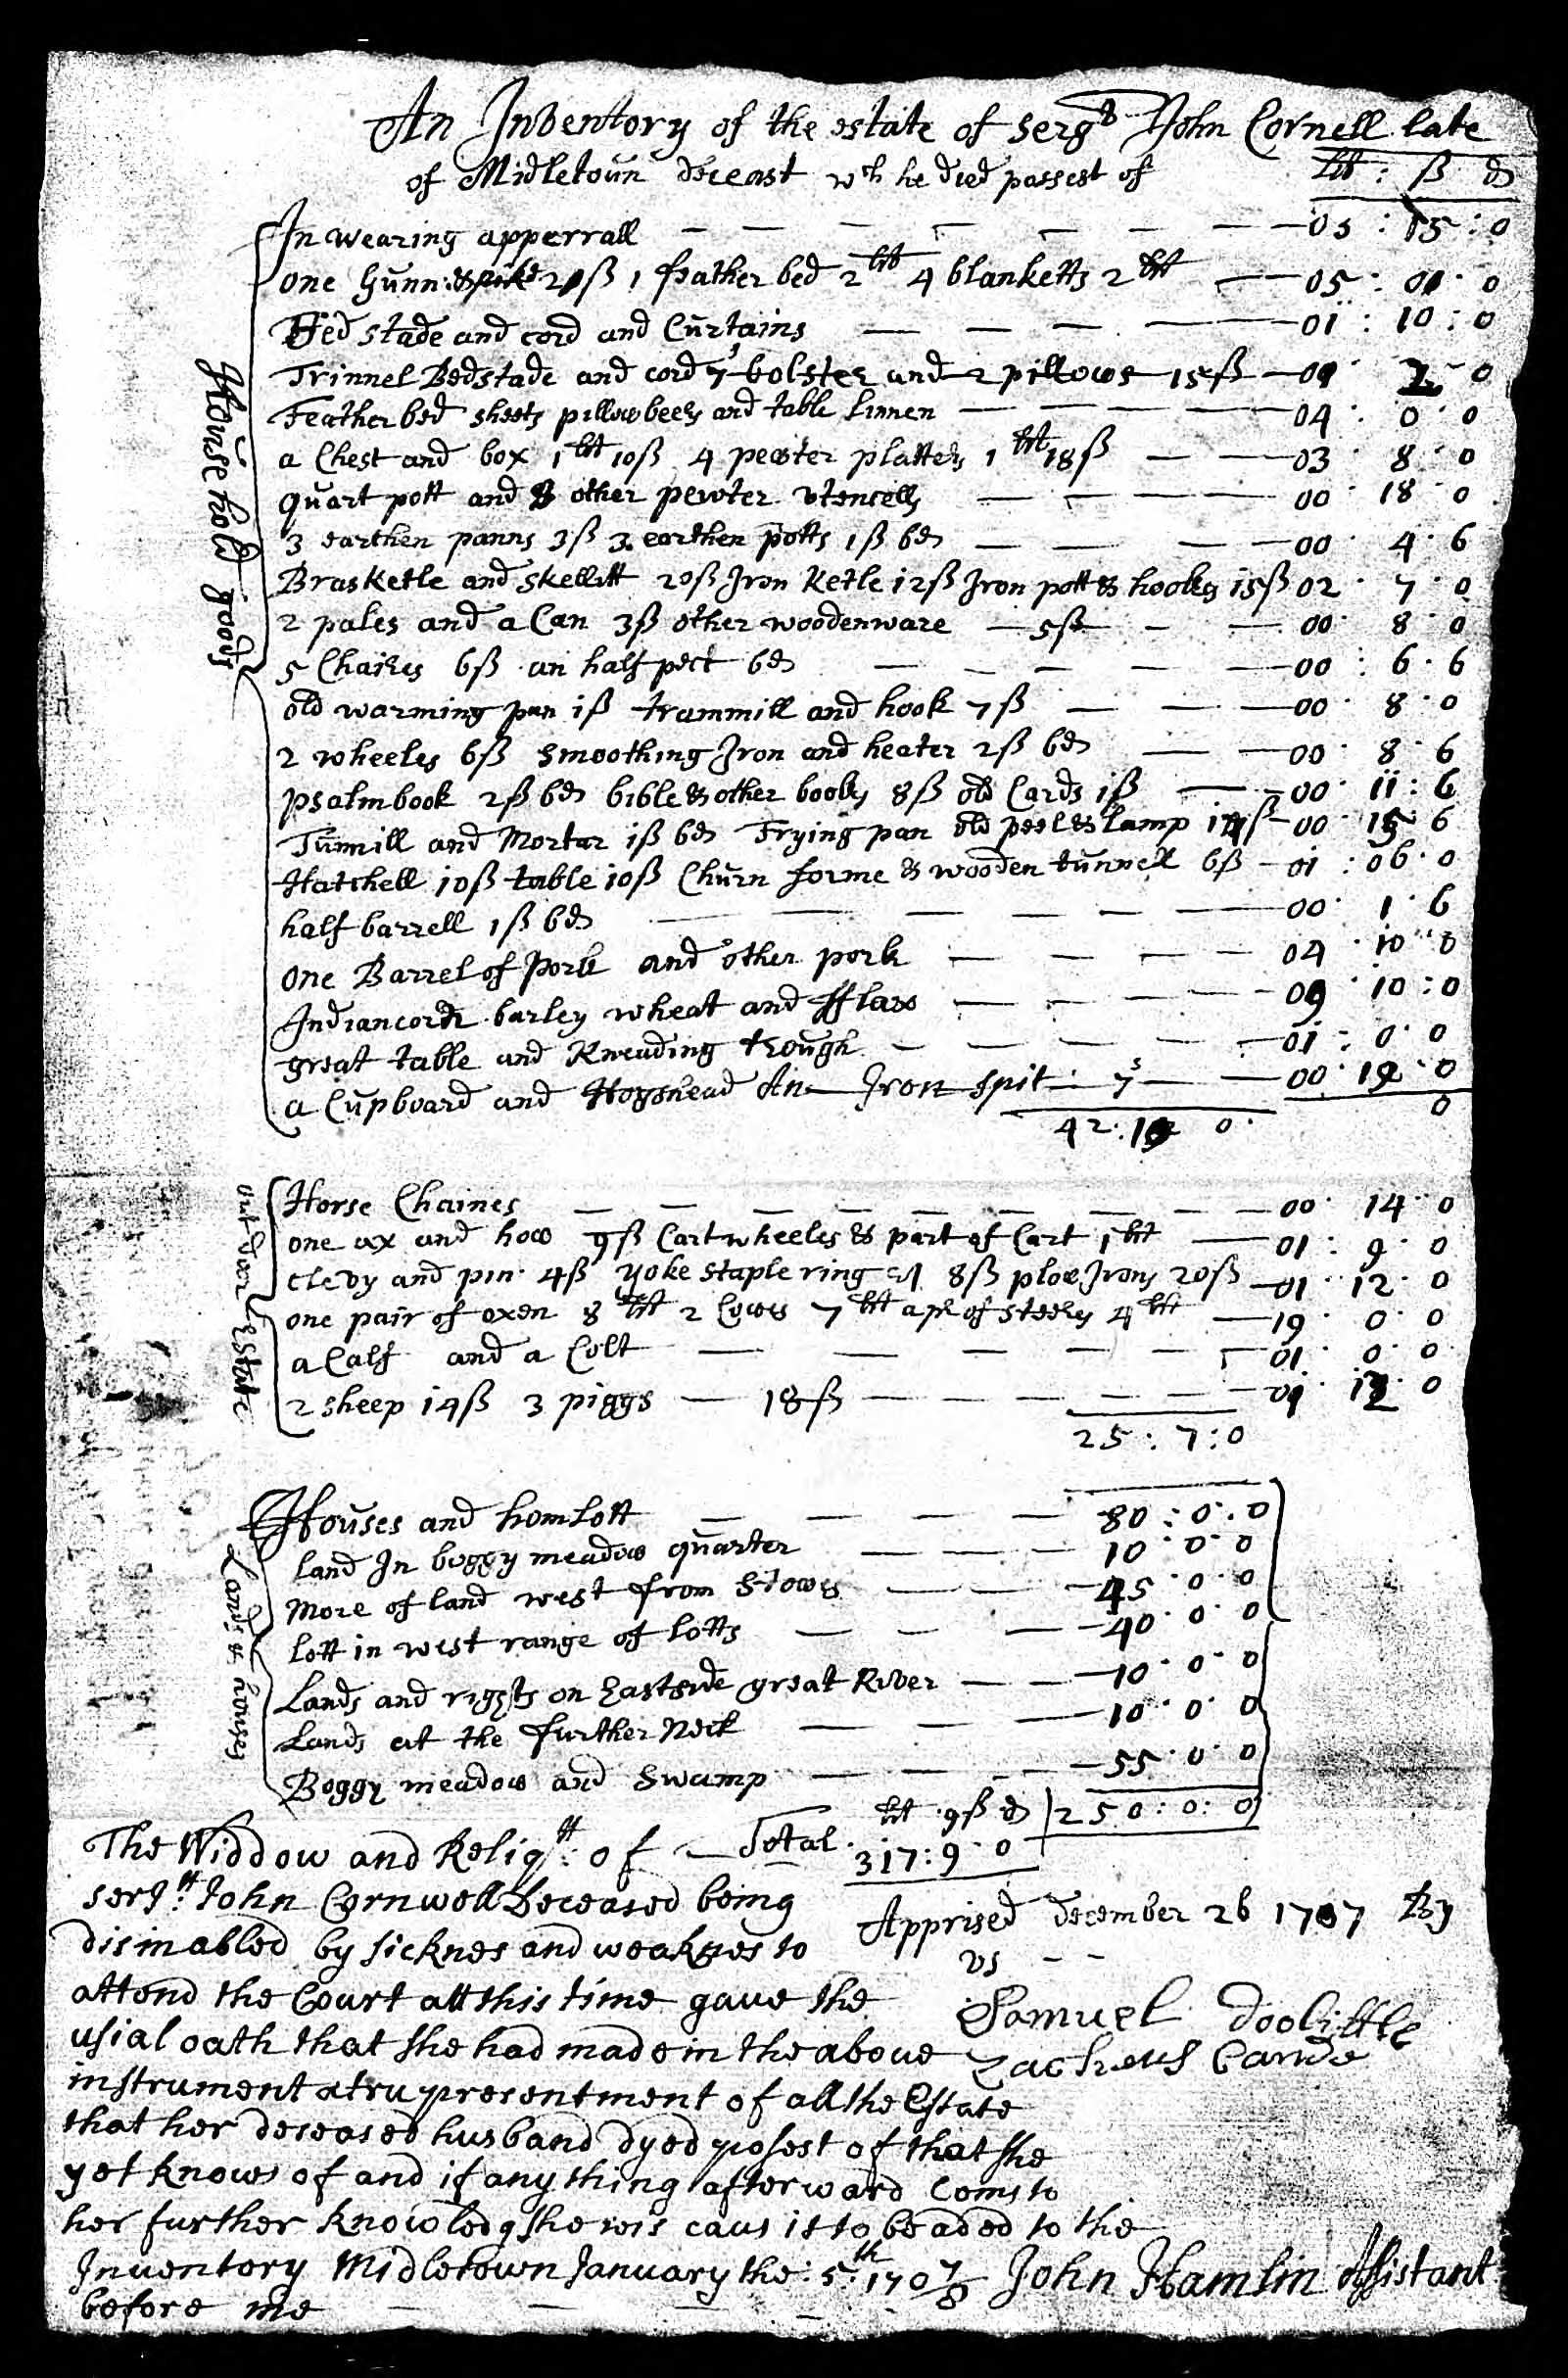 An Inventory of the estate of sergt John Cornell late
of Midletoun deceast wch he died possest of lbt : ß d
Household goods
In wearing apperrall — — — 05 : 15 : 0
one Gunn & pike 20ß 1 feather bed 2 lbt 4 blanketts 2 lbt — 05 : 00 : 0
Bed stade and cord and Curtains — — — 01 : 10 : 0
Trinnel Bedstade and cord 7s bolster and 2 pillows 15ß — 01 2 0
Feather bed sheets pillowbeers and table linnen — — — 04 : 0 : 0
a Chest and box 1 lbt 10ß 4 pewter platters 1 lbt 18ß — — 03 8 0
quart pott and 8 other pewter utencells — — — 00 : 18 : 0
3 earthen panns 3ß 3 earthen potts 1ß 6d — — — 00 4 6
Bras Ketle and Skellitt 20ß Iron Ketle 12ß Iron pott & hookes 15ß 02 7 0
2 pales and a Can 3ß other woodenware — 5ß — — 00 8 0
5 Chaires 6ß an half peck 6d — — — 00 : 6 : 6
old warming pan 1ß trammill and hook 7ß — — — 00 8 0
2 wheeles 6ß Smoothing Iron and heater 2ß 6d — — 00 8 6
psalmbook 2ß 6d bible & other books 8ß old Cards 1ß — 00 11 : 6
Tunnill and Mortar 1ß 6d Frying pan old peel & lamp 14ß — 00 15 6
Hatchell 10ß table 10ß Churn forme & wooden tunnell 6ß — 01 : 06 : 0
half barrell 1ß 6d — — — 00 1 6
one Barrel of pork and other pork — — — 04 10 0
Indiancorn barley wheat and fflax — — — 09 10 : 0
great table and Kneading trough — — — 01 : 0 : 0
a Cupboard and Hogshead An Iron spit : 7s — — 00 19 0
42 : 19 0 0
outdoar Estate
Horse Chaines — — — 00 14 0
one ax and how 9ß Cart wheeles & part of Cart 1 lbt — 01 : 9 0
clevy and pin 4ß yoke staple ring 8ß plow Irons 20ß — 01 12 0
one pair of oxen 8 lbt 2 Cows 7 lbt a pr of Steers 4 lbt — 19 0 0
a Calf and a Colt — — — 01 0 0
2 sheep 14ß 3 piggs — 18ß — — — 01 12 0
25 : 7 : 0
Lands & houses
Houses and homlott — — — 80 : 0 : 0
land In boggy meadow quarter — — — 10 0 0
More of land west from Stows — — — 45 0 0
lott in west range of lotts — — — 40 0 0
Lands and rights on Eastside great River — — 10 0 0
Lands at the further Neck — — — 10 0 0
Boggy meadow and Swamp — — — 55 0 0
lbt 9ß d 250 : 0 : 0
Total 317 : 9 0
The Widdow and Reliqtt: of
serjtt: John Cornwell Deceased being
disinabled by sicknes and weaknes to
attend the Court att this time gave the
usial oath that she had made in the above
instrument a tru presentment of all the Estate
that her deseased husband dyed posest of that she
yet knows of and if any thing afterward Coms to
her further knowledg she wis caus it to be aded to the
Inventory Midletown January the : 5th: 1707/8 John Hamlin Assistant
before me — — —
Apprised december 26 1707 By
us — —
Samuel doolittle
Zacheus Cande